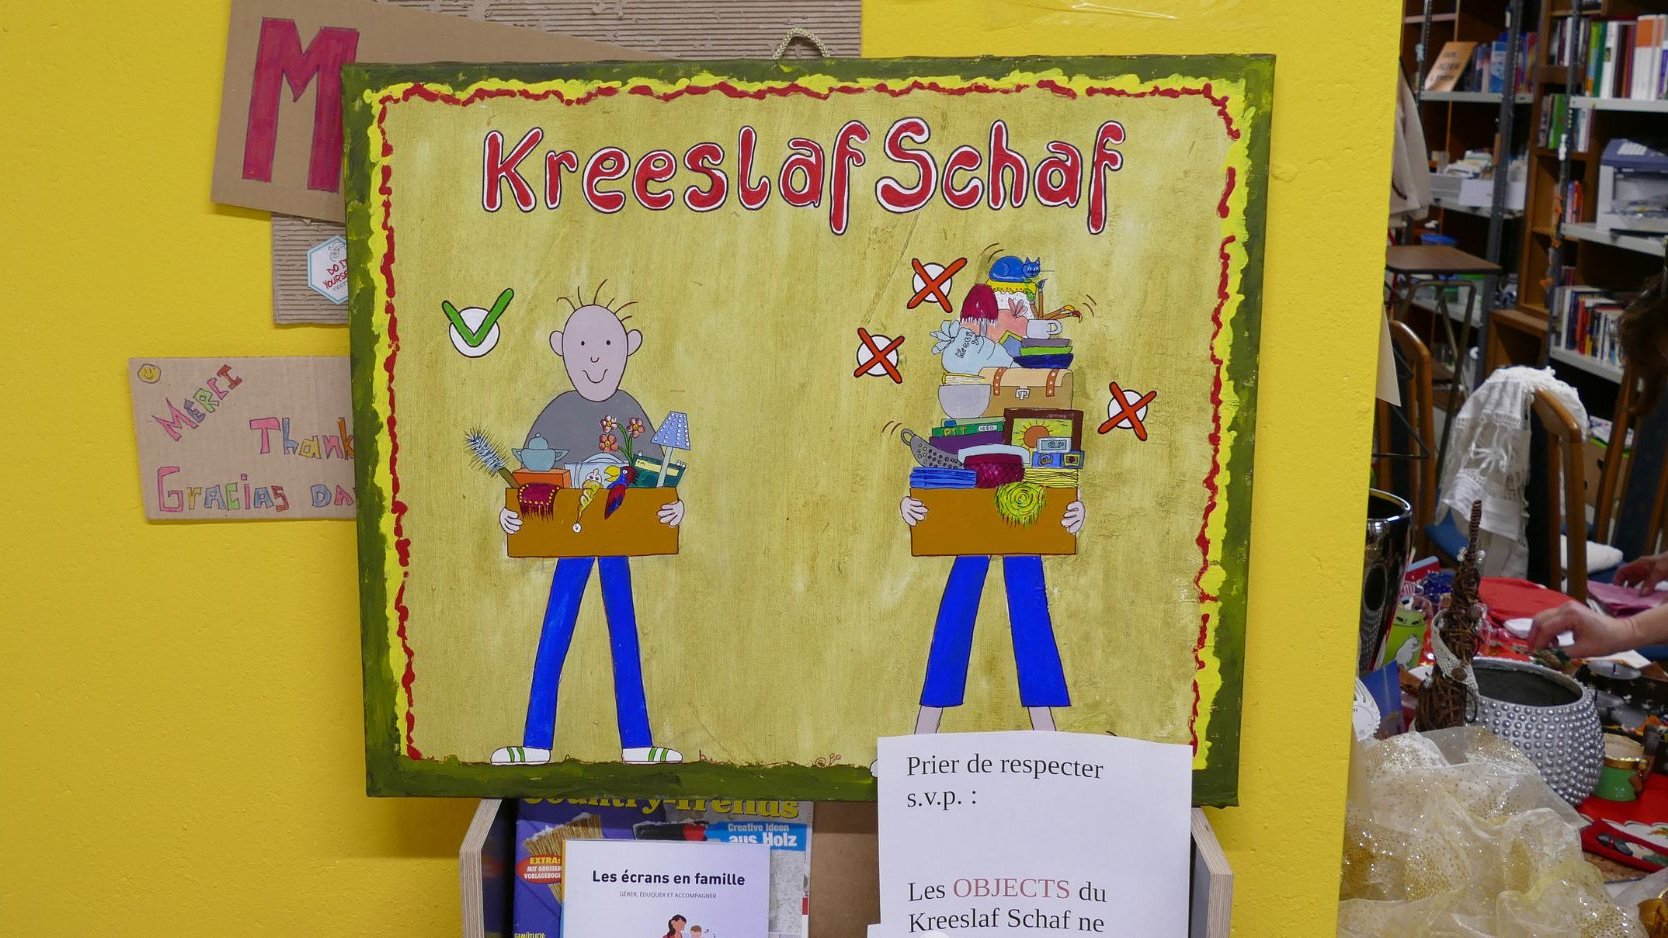 M
Kreeslaf Schaf
DO IT
MERCI
Thank
Gracias
Country-Trends
Creative Ideen
aus Holz
EXTRA:
Les écrans en famille
GÉRER, ÉDUQUER ET ACCOMPAGNER
Prier de respecter
s.v.p. :
Les OBJECTS du
Kreeslaf Schaf ne